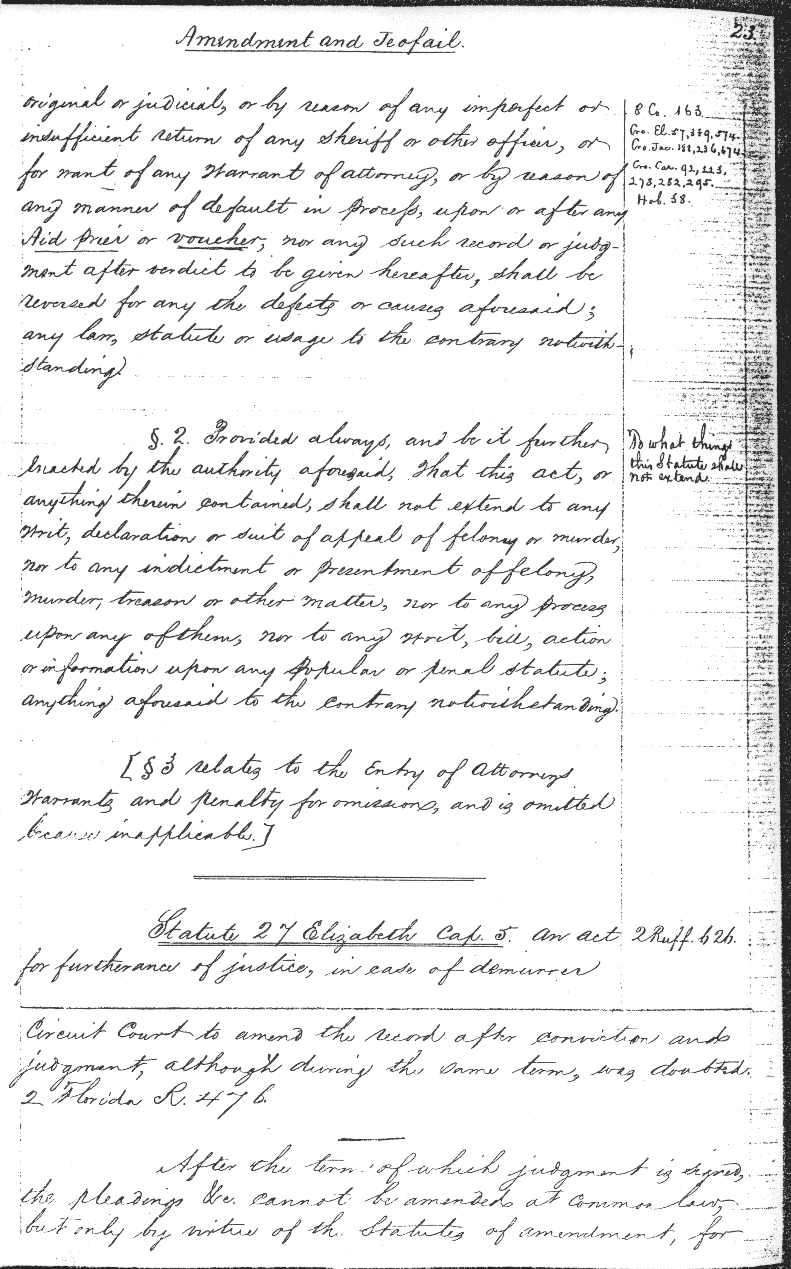 Amendment and Jeofail.
23.
original or judicial, or by reason of any imperfect or
insufficient return of any sheriff or other officer, or
for want of any Warrant of attorney, or by reason of
any manner of default in Process, upon or after any
Aid Prier or voucher; nor any such record or judg-
ment after verdict to be given hereafter, shall be
reversed for any the defects or causes aforesaid;
any law, statute or usage to the contrary notwith-
standing.
8 Co. 163.
Cro. El. 57, 389, 574.
Cro. Jac. 188, 236, 674.
Cro. Car. 92, 223,
278, 282, 295.
Hob. 38.
§. 2. Provided always, and be it further
enacted by the authority aforesaid, That this act, or
anything therein contained, shall not extend to any
Writ, declaration or suit of appeal of felony or murder,
nor to any indictment or Presentment of felony,
Murder, treason or other matter, nor to any process
upon any of them, nor to any Writ, bill, action
or information upon any popular or penal statute;
anything aforesaid to the contrary notwithstanding.
To what things
this Statute shall
not extend.
[§ 3 relates to the Entry of Attorneys
Warrants and penalty for omissions, and is omitted
because inapplicable.]
Statute 27 Elizabeth Cap. 5. An act
2 Ruff. 626.
for furtherance of justice, in case of demurrer
Circuit Court to amend the record after conviction and
judgment, although during the same term, was doubted.
2 Florida R. 476.
After the term of which judgment is signed,
the pleadings &c. cannot be amended at common law,
but only by virtue of the Statutes of amendment, for